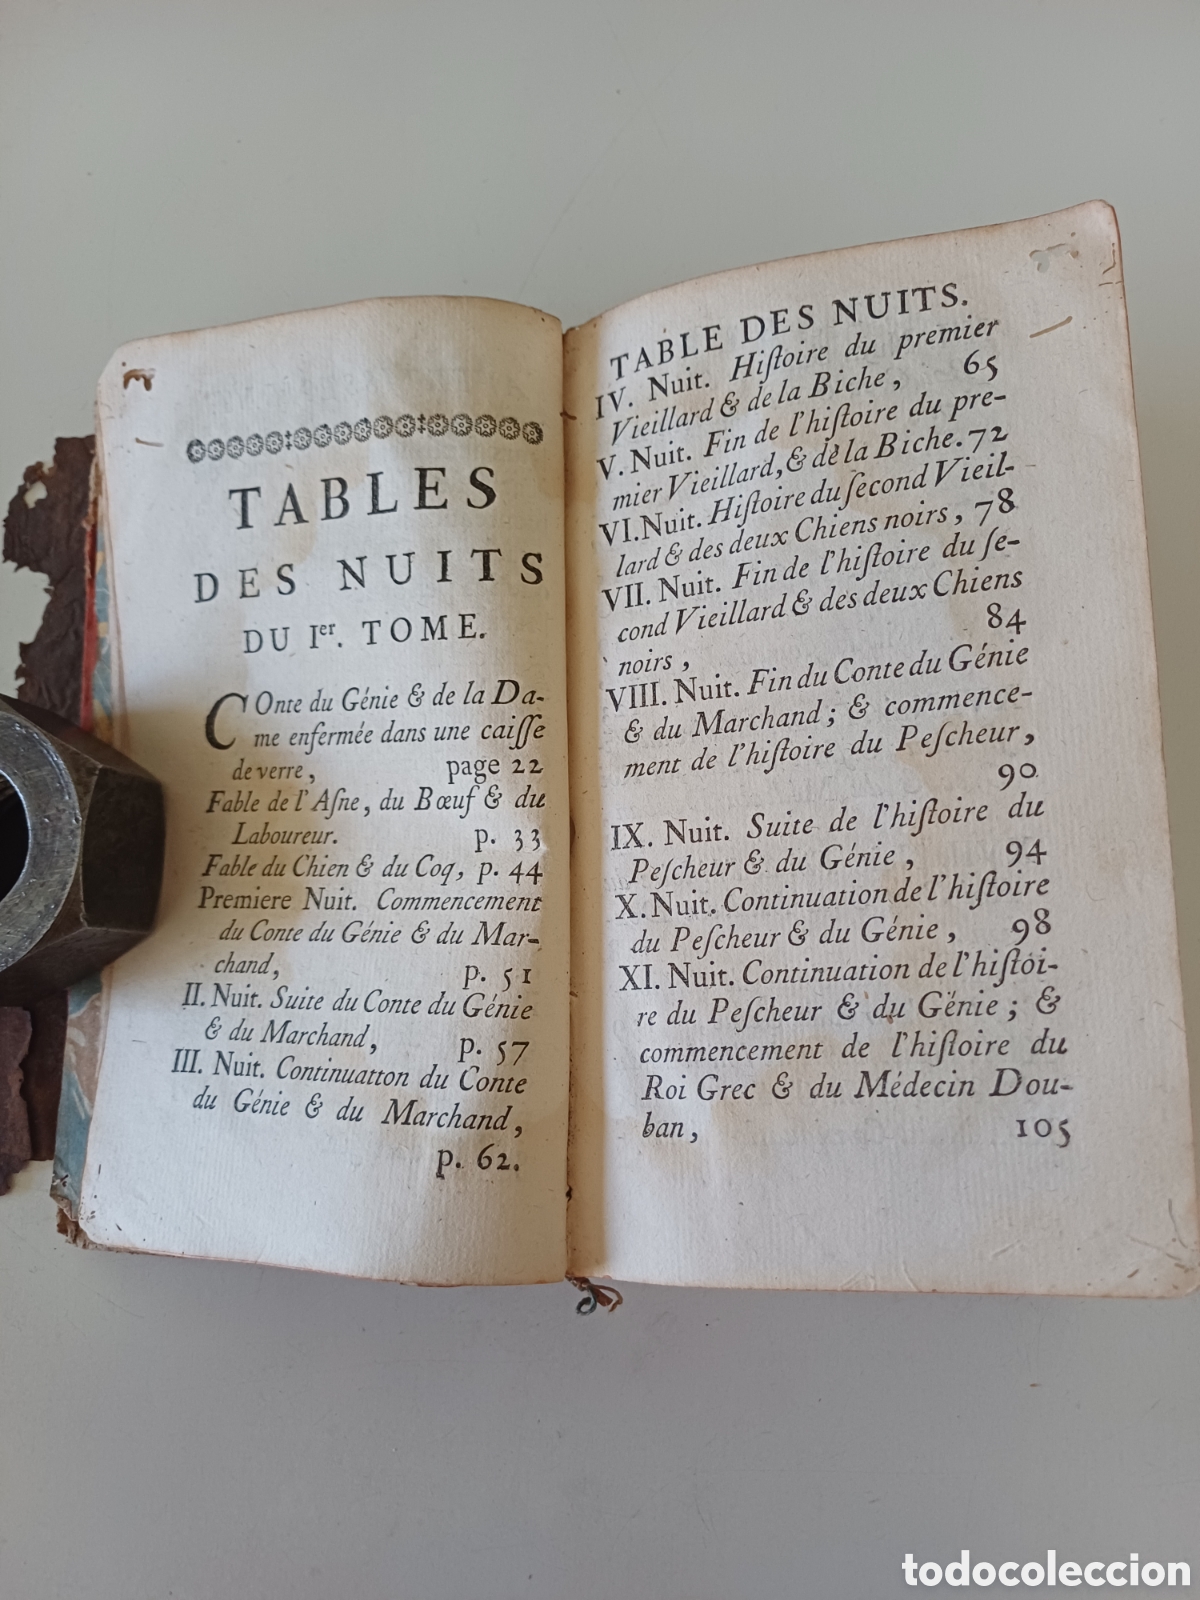 TABLES
DES NUITS
DU Ier. TOME.
COnte du Génie & de la Da-
me enfermée dans une caiſſe
de verre, page 22
Fable de l'Aſne, du Bœuf & du
Laboureur. p. 33
Fable du Chien & du Coq, p. 44
Premiere Nuit. Commencement
du Conte du Génie & du Mar-
chand, p. 51
II. Nuit. Suite du Conte du Génie
& du Marchand, p. 57
III. Nuit. Continuatton du Conte
du Génie & du Marchand,
p. 62.
TABLE DES NUITS.
IV. Nuit. Hiſtoire du premier
Vieillard & de la Biche, 65
V. Nuit. Fin de l'hiſtoire du pre-
mier Vieillard, & de la Biche. 72
VI. Nuit. Hiſtoire du ſecond Vieil-
lard & des deux Chiens noirs, 78
VII. Nuit. Fin de l'hiſtoire du ſe-
cond Vieillard & des deux Chiens
noirs, 84
VIII. Nuit. Fin du Conte du Génie
& du Marchand; & commence-
ment de l'hiſtoire du Peſcheur,
90
IX. Nuit. Suite de l'hiſtoire du
Peſcheur & du Génie, 94
X. Nuit. Continuation de l'hiſtoire
du Peſcheur & du Génie, 98
XI. Nuit. Continuation de l'hiſtoi-
re du Peſcheur & du Génie; &
commencement de l'hiſtoire du
Roi Grec & du Médecin Dou-
ban, 105
todocoleccion